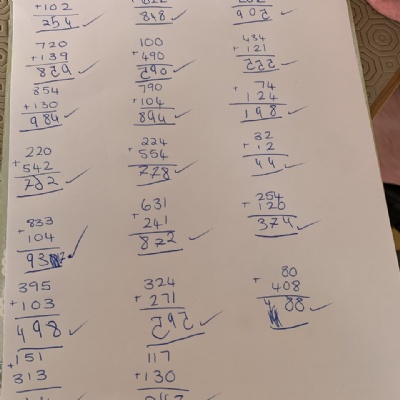 +102
254
848
905
720
+139
859
100
+490
590
434
+121
555
854
+130
984
790
+104
894
74
+124
198
220
+542
762
224
+554
778
32
+12
44
833
+104
937
631
+241
872
254
+120
374
395
+103
498
324
+271
595
80
+408
488
+151
313
117
+130